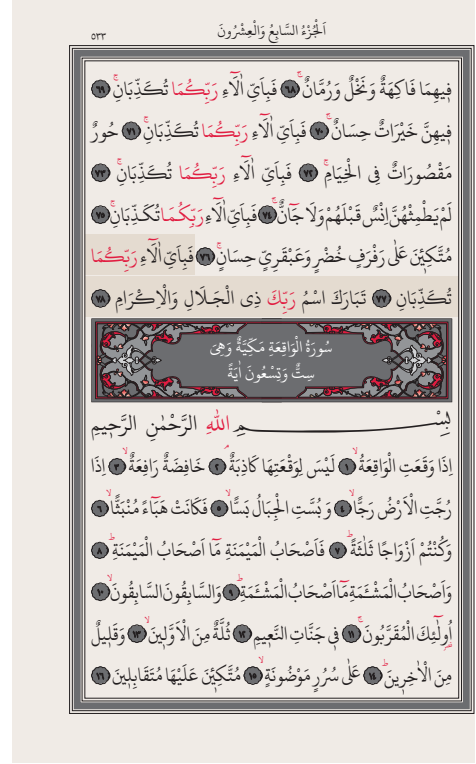 اَلْجُزْءُ السَّابِعُ وَالْعِشْرُونَ
٥٣٣
فِيهِمَا فَاكِهَةٌ وَنَخْلٌ وَرُمَّانٌۚ ﴿٦٨﴾ فَبِاَيِّ اٰلَٓاءِ رَبِّكُمَا تُكَذِّبَانِۚ ﴿٦٩﴾
فِيهِنَّ خَيْرَاتٌ حِسَانٌۚ ﴿٧٠﴾ فَبِاَيِّ اٰلَٓاءِ رَبِّكُمَا تُكَذِّبَانِۚ ﴿٧١﴾ حُورٌ
مَقْصُورَاتٌ فِي الْخِيَامِۚ ﴿٧٢﴾ فَبِاَيِّ اٰلَٓاءِ رَبِّكُمَا تُكَذِّبَانِۚ ﴿٧٣﴾
لَمْ يَطْمِثْهُنَّ اِنْسٌ قَبْلَهُمْ وَلَا جَٓانٌّۚ ﴿٧٤﴾ فَبِاَيِّ اٰلَٓاءِ رَبِّكُمَا تُكَذِّبَانِۚ ﴿٧٥﴾
مُتَّكِـِٔينَ عَلٰى رَفْرَفٍ خُضْرٍ وَعَبْقَرِيٍّ حِسَانٍۚ ﴿٧٦﴾ فَبِاَيِّ اٰلَٓاءِ رَبِّكُمَا
تُكَذِّبَانِ ﴿٧٧﴾ تَبَارَكَ اسْمُ رَبِّكَ ذِي الْجَلَالِ وَالْاِكْرَامِ ﴿٧٨﴾
سُورَةُ الْوَاقِعَةِ مَكِّيَّةٌ وَهِيَ
سِتٌّ وَتِسْعُونَ اٰيَةً
بِسْمِ اللّٰهِ الرَّحْمٰنِ الرَّحِيمِ
اِذَا وَقَعَتِ الْوَاقِعَةُۙ ﴿١﴾ لَيْسَ لِوَقْعَتِهَا كَاذِبَةٌۢ ﴿٢﴾ خَافِضَةٌ رَافِعَةٌۙ ﴿٣﴾ اِذَا
رُجَّتِ الْاَرْضُ رَجًّاۙ ﴿٤﴾ وَبُسَّتِ الْجِبَالُ بَسًّاۙ ﴿٥﴾ فَكَانَتْ هَبَٓاءً مُنْبَثًّاۙ ﴿٦﴾
وَكُنْتُمْ اَزْوَاجًا ثَلٰثَةًۜ ﴿٧﴾ فَاَصْحَابُ الْمَيْمَنَةِ مَٓا اَصْحَابُ الْمَيْمَنَةِۜ ﴿٨﴾
وَاَصْحَابُ الْمَشْـَٔمَةِ مَٓا اَصْحَابُ الْمَشْـَٔمَةِۜ ﴿٩﴾ وَالسَّابِقُونَ السَّابِقُونَۙ ﴿١٠﴾
اُو۬لٰٓئِكَ الْمُقَرَّبُونَۚ ﴿١١﴾ فِي جَنَّاتِ النَّعِيمِ ﴿١٢﴾ ثُلَّةٌ مِنَ الْاَوَّلِينَۙ ﴿١٣﴾ وَقَلِيلٌ
مِنَ الْاٰخِرِينَۜ ﴿١٤﴾ عَلٰى سُرُرٍ مَوْضُونَةٍۙ ﴿١٥﴾ مُتَّكِـِٔينَ عَلَيْهَا مُتَقَابِلِينَ ﴿١٦﴾